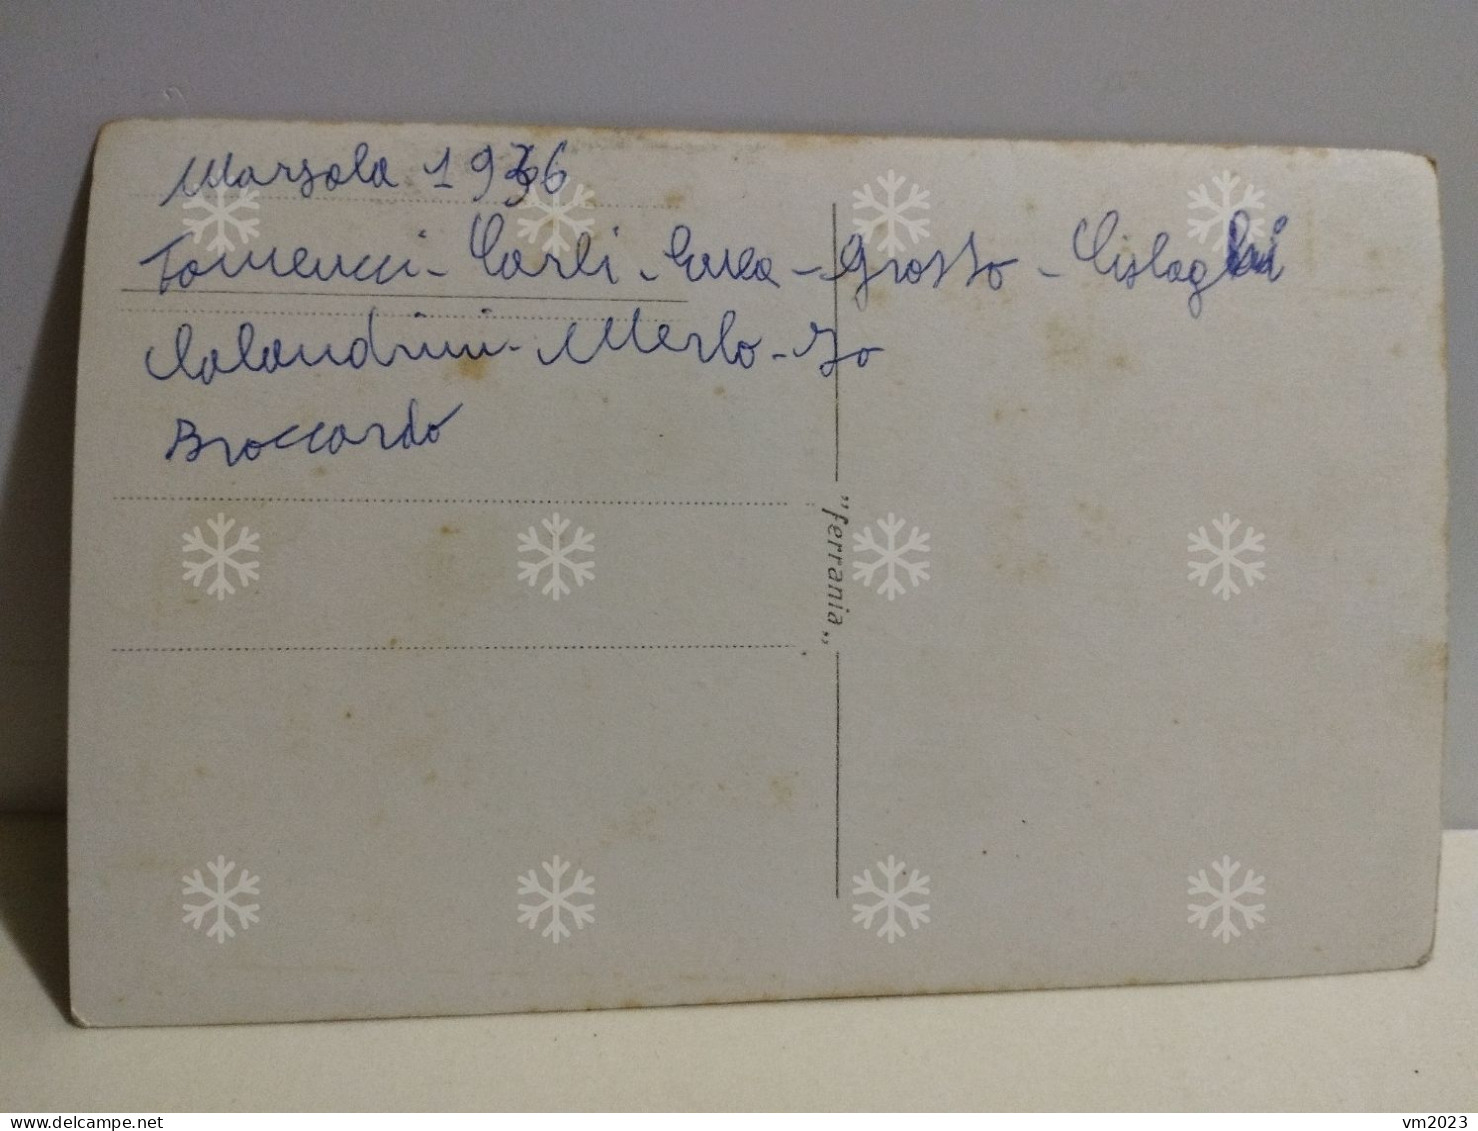 Marsola 1936
Tomencci - Carli - Luca - Grosso - Cislaghi
Calandrini - Merlo - Io
Broccardo
"ferrania"
delcampe.net
vm2023